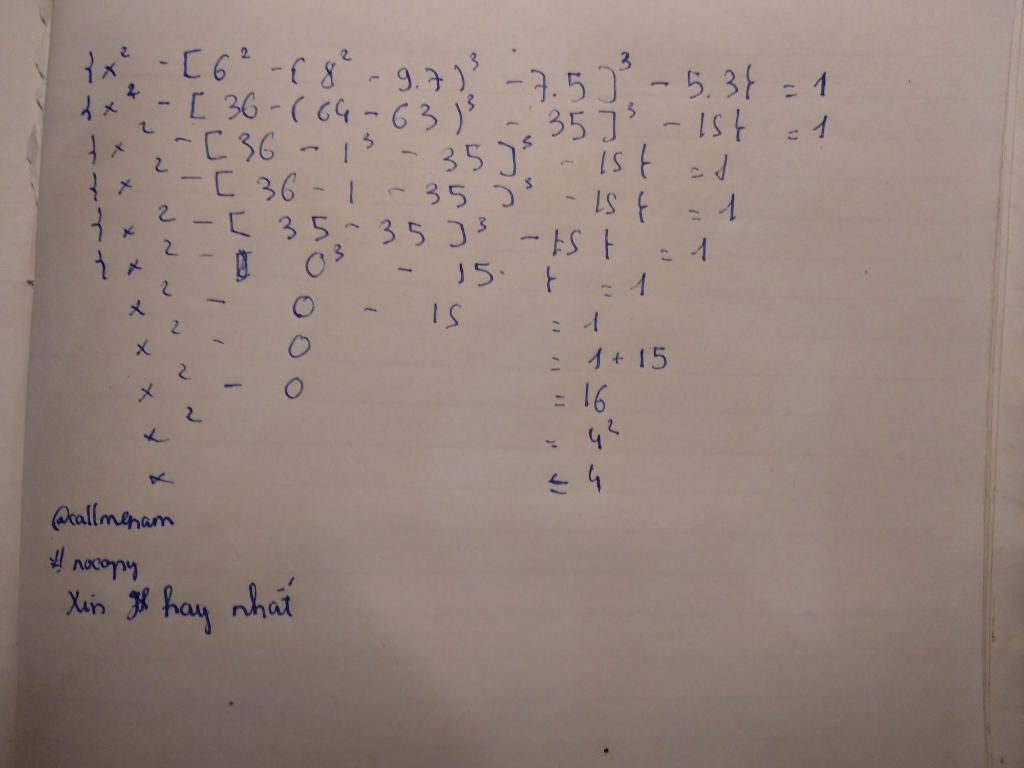 {x² - [6² - (8² - 9.7)³ - 7.5]³ - 5.3} = 1
{x² - [36 - (64 - 63)³ - 35]³ - 15} = 1
{x² - [36 - 1³ - 35]³ - 15} = 1
{x² - [36 - 1 - 35]³ - 15} = 1
{x² - [35 - 35]³ - 15} = 1
{x² - 0³ - 15} = 1
x² - 0 - 15 = 1
x² - 0 = 1 + 15
x² - 0 = 16
x² = 4²
x = 4
@callmenam
# nocopy
Xin hay nhất